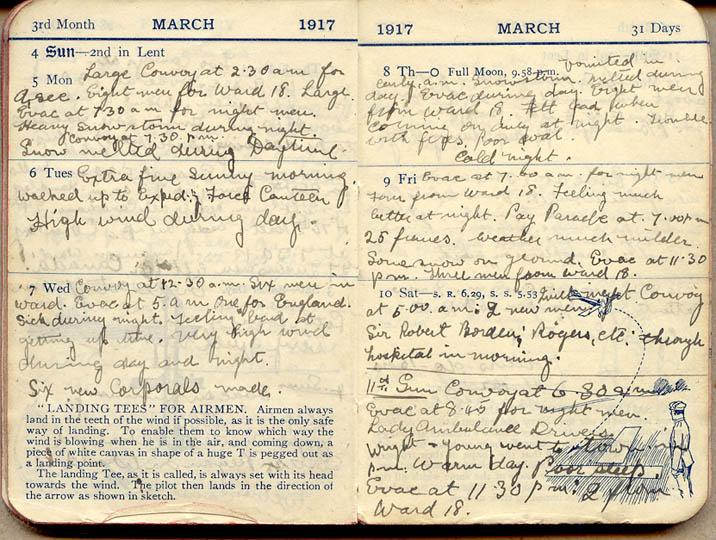 3rd Month MARCH 1917
4 Sun—2nd in Lent
5 Mon Large Convoy at 2.30 am for
Eight men for Ward 18. Large
Evac at 7.30 am for night men.
Heavy snowstorm during night.
Convoy at 7.30 p.m.
Snow melted during Daytime.
6 Tues Extra fine sunny morning
walked up to Exped: Force Canteen
High wind during day.
7 Wed Convoy at 12.30 a.m. Six men in
ward. Evac at 5. a m one for England.
Sick during night. Feeling bad at
getting up time. Very high wind
during day and night.
Six new Corporals made.
"LANDING TEES" FOR AIRMEN. Airmen always
land in the teeth of the wind if possible, as it is the only safe
way of landing. To enable them to know which way the
wind is blowing when he is in the air, and coming down, a
piece of white canvas in shape of a huge T is pegged out as
a landing point.
The landing Tee, as it is called, is always set with its head
towards the wind. The pilot then lands in the direction of
the arrow as shown in sketch.
1917 MARCH 31 Days
8 Th—O Full Moon, 9.58 p.m. vomited in
early a.m. Snowstorm. melted during
day. Evac during day. Eight men
from Ward 18. Felt bad when
coming on duty at night. Trouble
with fires, poor coal.
Cold night.
9 Fri Evac at 7. a.m. for night men
four from Ward 18. Feeling much
better at night. Pay Parade at 7. p m
25 francs. Weather much milder.
Some snow on ground. Evac at 11.30
p.m. Three men from Ward 18.
10 Sat—S. R. 6.29, S. S. 5.53 Convoy
at 5.00 a.m. 2 new men
Sir Robert Borden, Rogers, etc. through
hospital in morning.
11th Sun Convoy at 6.30 a m
Evac at 8.45 for night men
Lady Ambulance Drivers
Wright - Young went to town
p.m. Warm day. Poor sleep.
Evac at 11 30 p m. 2 from
Ward 18.